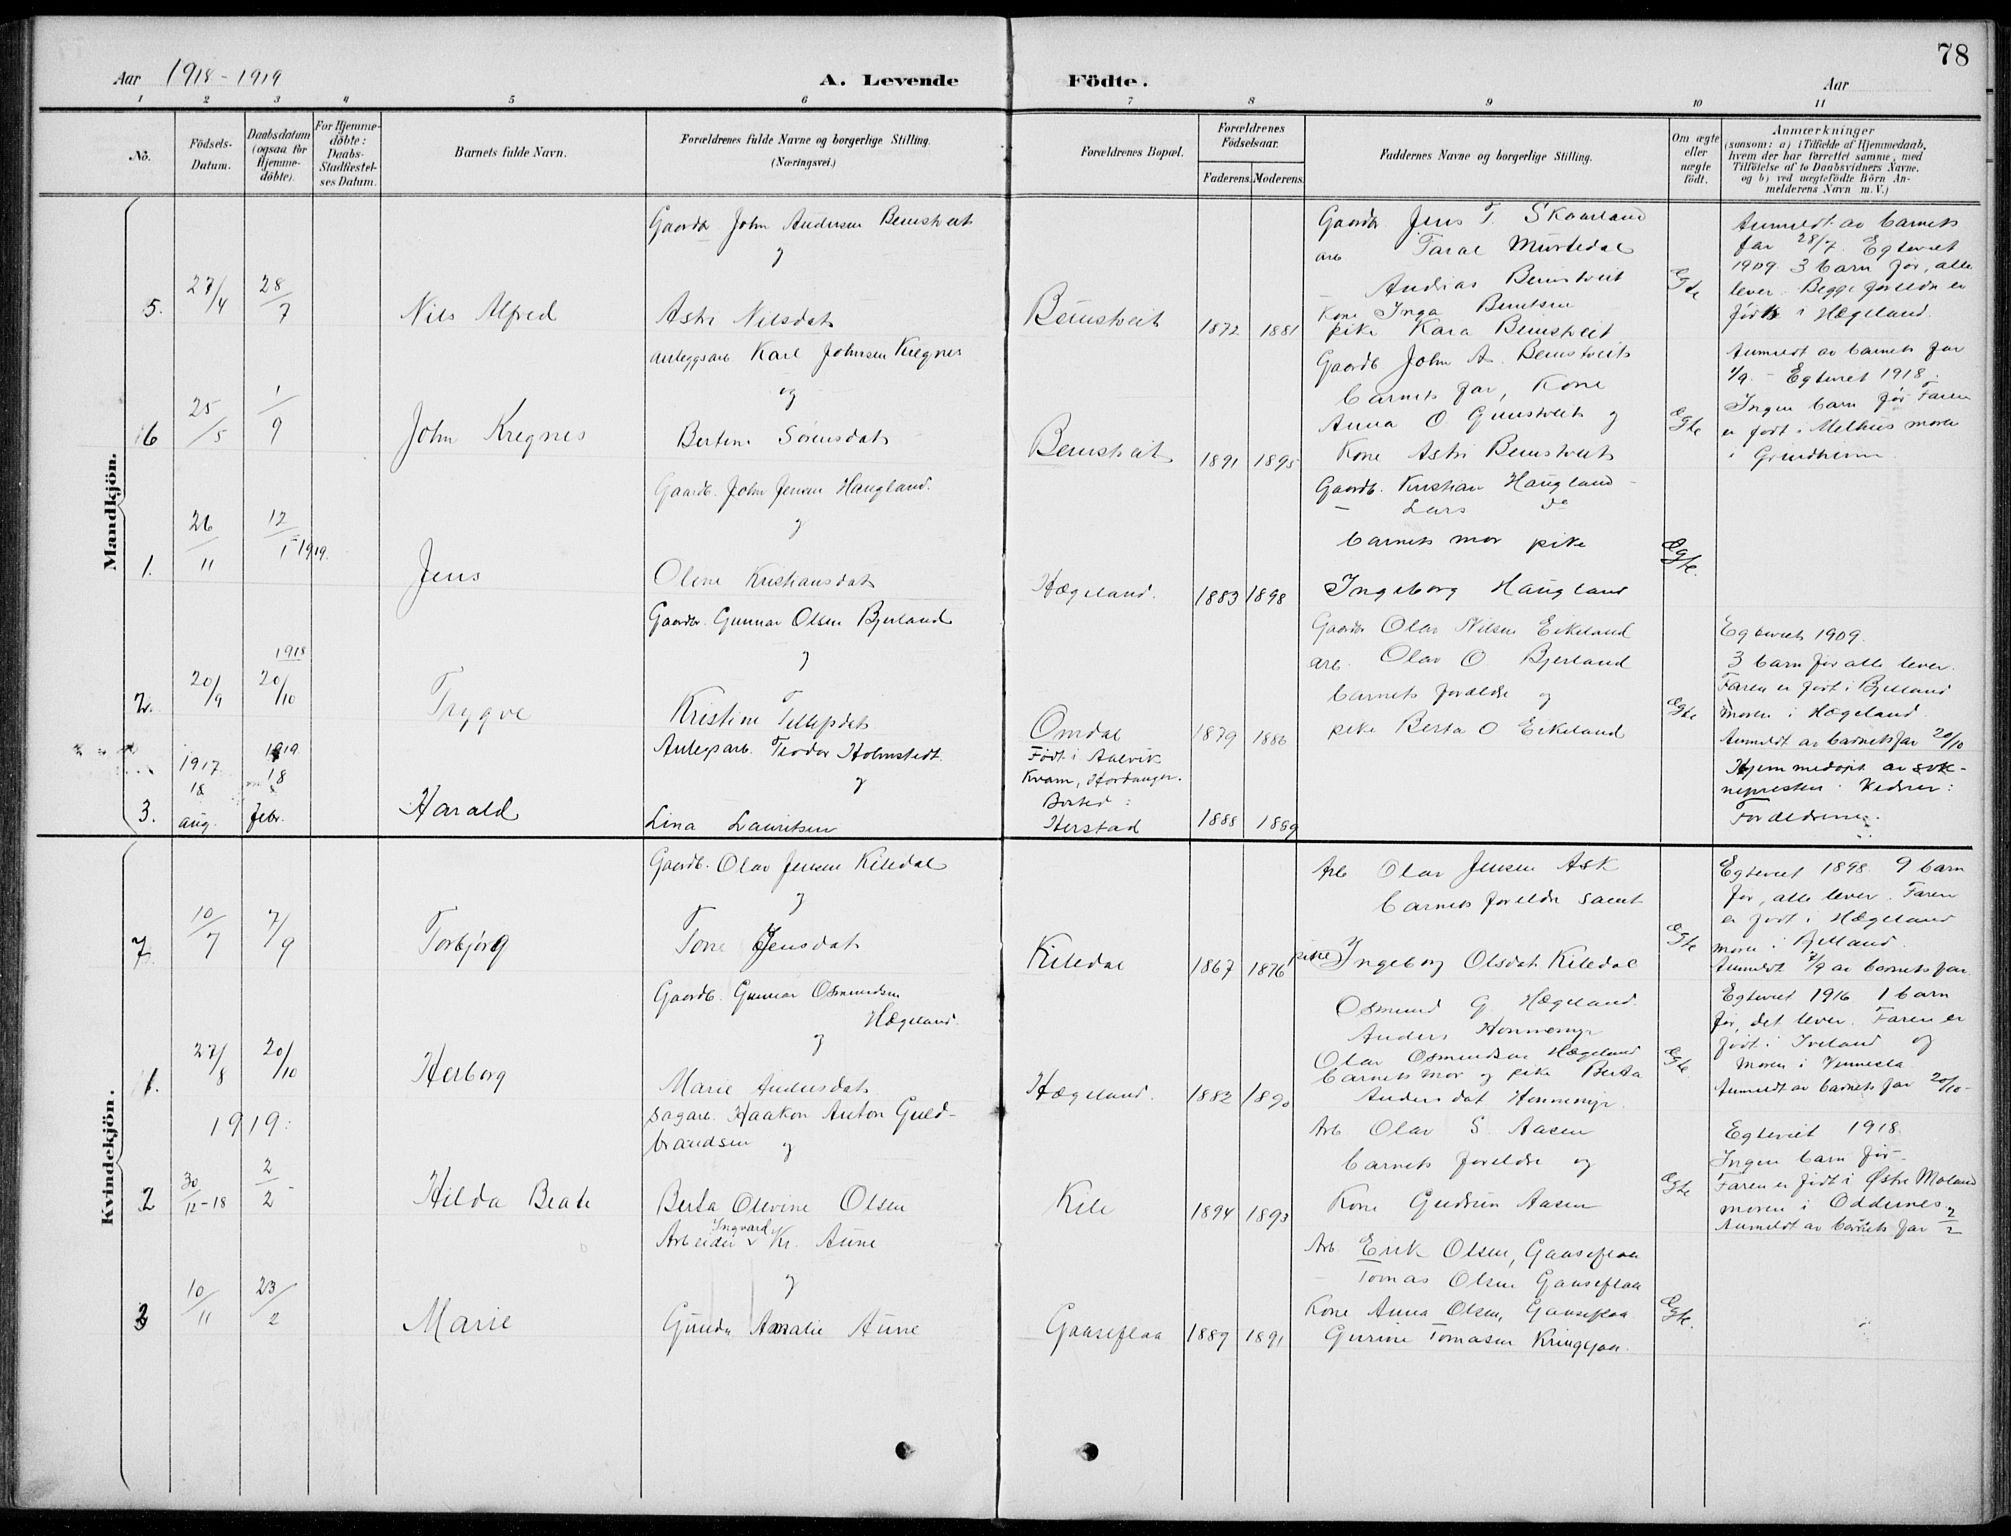 78
Aar 1918-1919
A. Levende Födte.
Aar
1 2 3 4 5 6 7 8 9 10 11
No.
Födsels-
Datum.
Daabsdatum
(ogsaa for
Hjemme-
döbte).
For Hjemme-
döbte:
Daabs-
Stadfæstel-
ses Datum.
Barnets fulde Navn.
Forældrenes fulde Navne og borgerlige Stilling.
(Næringsvei.)
Forældrenes Bopæl.
Forældrenes
Födselsaar.
Faderens. Moderens.
Faddernes Navne og borgerlige Stilling.
Om ægte
eller
uægte
födt.
Anmærkninger
(saasom: a) i Tilfælde af Hjemmedaab,
hvem der har forrettet samme, med
Tilföielse af to Daabsvidners Navne,
og b) ved uægtefödte Börn An-
melderens Navn m. V.)
Mandkjön.
5.
27/4
28/7
Nils Alfred
Gaardbr John Andersen Beinstveit
og
Astri Nilsdatr
Beinstveit
1872 1881
Gaardbr Jens T. Skaarland
arb Taral Murtedal
— Andreas Beinstveit
Kone Inga Berntsen
pike Kara Beinstveit
Ægte
Anmeldt av barnets
far 28/7. Egteviet
1909. 3 barn før, alle
lever. Begge foreldre er
født i Hægeland.
6
25/5
1/9
John Kregnes
Anleggsarb Karl Johnsen Kregnes
og
Bertine Sørensdatr
Beinstveit
1891 1895
Gaardb John A. Beinstveit
barnets far, Kone
Anna O Gunstveit og
Kone Astri Beinstveit
Ægte
Anmeldt av barnets far
1/9. – Egteviet 1918.
Ingen barn før Faren
er født i Melhus moren
i Grindheim
1.
26/11
12/1 1919.
Jens
Gaardb. John Jensen Haugland.
og
Olene Kristiansdatr
Hægeland.
1883 1898
Gaardb. Kristian Haugland
— Lars do
barnets mor pike
Ingeborg Haugland
Ægte.
2.
20/9
1918
20/10
Trygve
Gaardbr. Gunnar Olsen Bjerland
og
Kristine Tellefsdatr
Omdal
1879 1886
Gaardbr Olav Nilsen Eikeland
arb. Olav O Bjerland
barnets foreldre og
pike Berta O Eikeland
Ægte
Egteviet 1909.
3 barn før alle lever.
Faren er født i Bjelland
moren i Hægeland.
Anmeldt av barnets far 20/10
3.
1917
18
aug.
1919
18
febr.
Harald
Anlegsarb. Teodor Holmstedt
og
Lina Lauritsen
Født i Aalvik
Kvam, Hardanger.
Bosted:
Herstad
1888 1889
Hjemmedøpt av sok-
nepresten. Vidner:
Forældrene.
Kvindekjön.
7.
10/7
7/9
Torbjørg
Gaardb. Olav Jensen Kiledal
og
Tone Jensdatr
Kiledal
1867 1876
Arb Olav Jensen Ask
barnets foreldre samt
pike Ingeborg Olsdatr Kiledal
Ægte
Egteviet 1898 9 barn
før, alle lever. Faren
er født i Hægeland
moren i Bjelland.
Anmeldt 7/9 av barnets far
1.
27/8
20/10
Herborg
Gaardb. Gunnar Osmundsen
Hægeland.
og
Marie Andersdatr
Hægeland.
1882 1890
Osmund G Hægeland.
Anders Honnemyr
Olav Osmundsen Hægeland
barnets mor og pike Berta
Andersdat Honnemyr
Ægte.
Egteviet 1916 1 barn
før, det lever. Faren er
født i Iveland og
Moren i Vennesla
Anmeldt av barnets far 20/10-
1919:
2
30/12-18
2/2
Hilda Beate
Sagarb. Haakon Anton Guld-
brandsen og
Berta Olevine Olsen
Kile
1894 1893
Arb Olav S. Aasen
barnets foreldre og
Kone Gudrun Aasen
Ægte
Egteviet 1918.
Ingen barn før-
Faren er født i Østre Moland
moren i Oddernes
Anmeldt av barnets far 2/2
3
10/11
23/2
Marie
Arbeider Ingvard Kr. Aune
og
Gunda Amalie Aune
Gaaseflaa
1889 1891
Arb. Erik Olsen, Gaaseflaa
— Tomas Olsen Gaaseflaa
Kone Anna Olsen, Gaaseflaa
Gurine Tomasen Kringsjaa.
Ægte.